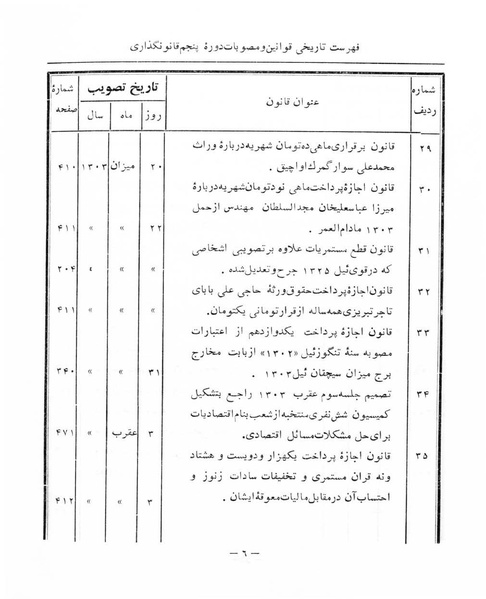 فهرست تاریخی قوانین و مصوبات دورهٔ پنجم قانونگذاری
شماره ردیف
عنوان قانون
تاریخ تصویب
روز
ماه
سال
شمارهٔ صفحه
۲۹
قانون برقراری ماهی ده تومان شهریه دربارهٔ وراث
محمدعلی سوار گمرک اواچیق .
۲۰ میزان ۱۳۰۳ ۴۱۰
۳۰
قانون اجازهٔ پرداخت ماهی نود تومان شهریه دربارهٔ
میرزا عباسعلیخان مجدالسلطان مهندس از حمل
۱۳۰۳ مادام العمر .
۲۲ » » ۴۱۱
۳۱
قانون قطع مستمریات علاوه بر تصویبی اشخاصی
که در قوی ئیل ۱۳۲۵ جرح و تعدیل شده .
» » » ۲۰۴
۳۲
قانون اجازهٔ پرداخت حقوق ورثهٔ حاجی علی بابای
تاجر تبریزی همه ساله از قرار تومانی یکتومان .
» » » ۴۱۱
۳۳
قانون اجازهٔ پرداخت یکدوازدهم از اعتبارات
مصوبه سنهٔ تنگوز ئیل «۱۳۰۲» از بابت مخارج
برج میزان سیچقان ئیل ۱۳۰۳ .
۳۱ » » ۳۴۰
۳۴
تصمیم جلسه سوم عقرب ۱۳۰۳ راجع بتشکیل
کمیسیون شش نفری منتخبه از شعب بنام اقتصادیات
برای حل مشکلات مسائل اقتصادی .
۳ عقرب » ۴۷۱
۳۵
قانون اجازهٔ پرداخت یکهزار و دویست و هشتاد
و نه قران مستمری و تخفیفات سادات زنوز و
احتساب آن در مقابل مالیات معوقهٔ ایشان .
۳ » » ۴۱۲
— ٦ —